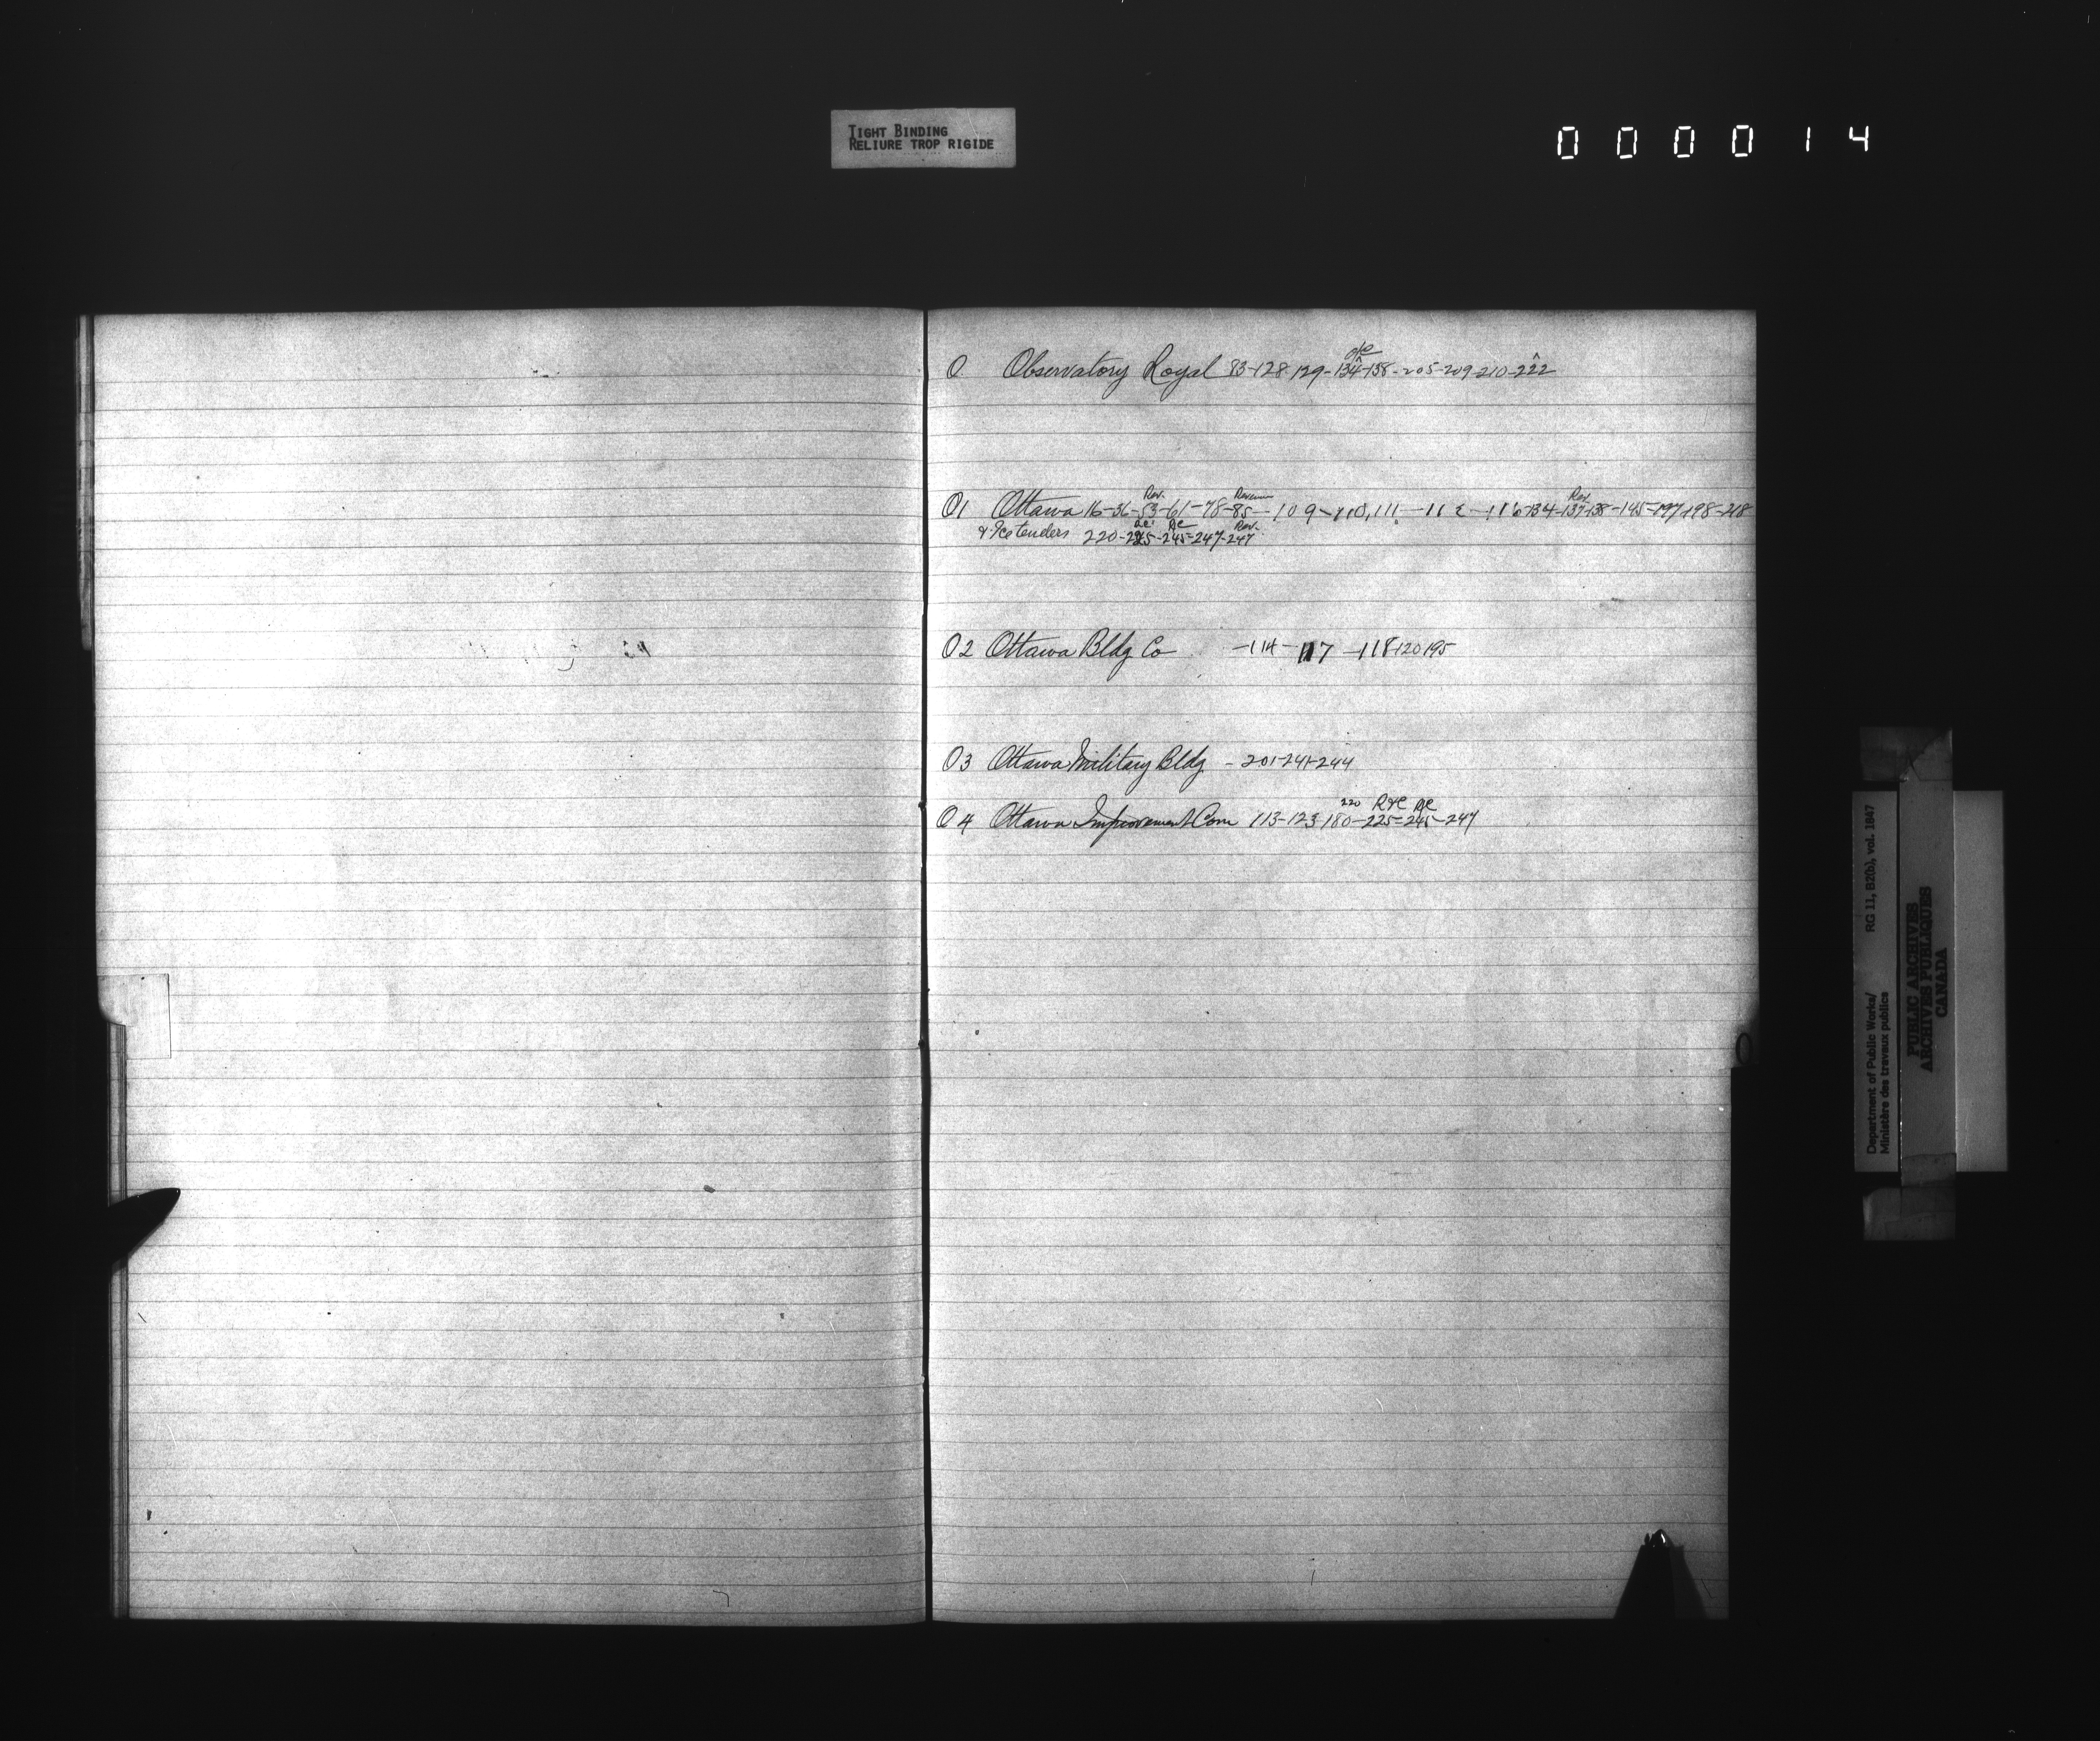 TIGHT BINDING
RELIURE TROP RIGIDE
000014
O Observatory Royal 83-128-129-134-138-205-209-210-222
Rev. Revenue Rev
O1 Ottawa 16-36-53-61-78-85-109-110,111-112-116-134-137-138-145-197-198-218
Rev.
& Ice tenders 220-225-245-247-247
O2 Ottawa Bldg Co -114-117-118-120 195
O3 Ottawa Military Bldg - 201-241-244
220
O4 Ottawa Improvement Com 113-123-180-225-245-247
O
Department of Public Works/ RG 11, B2(b), vol. 1847
Ministère des travaux publics
PUBLIC ARCHIVES
ARCHIVES PUBLIQUES
CANADA